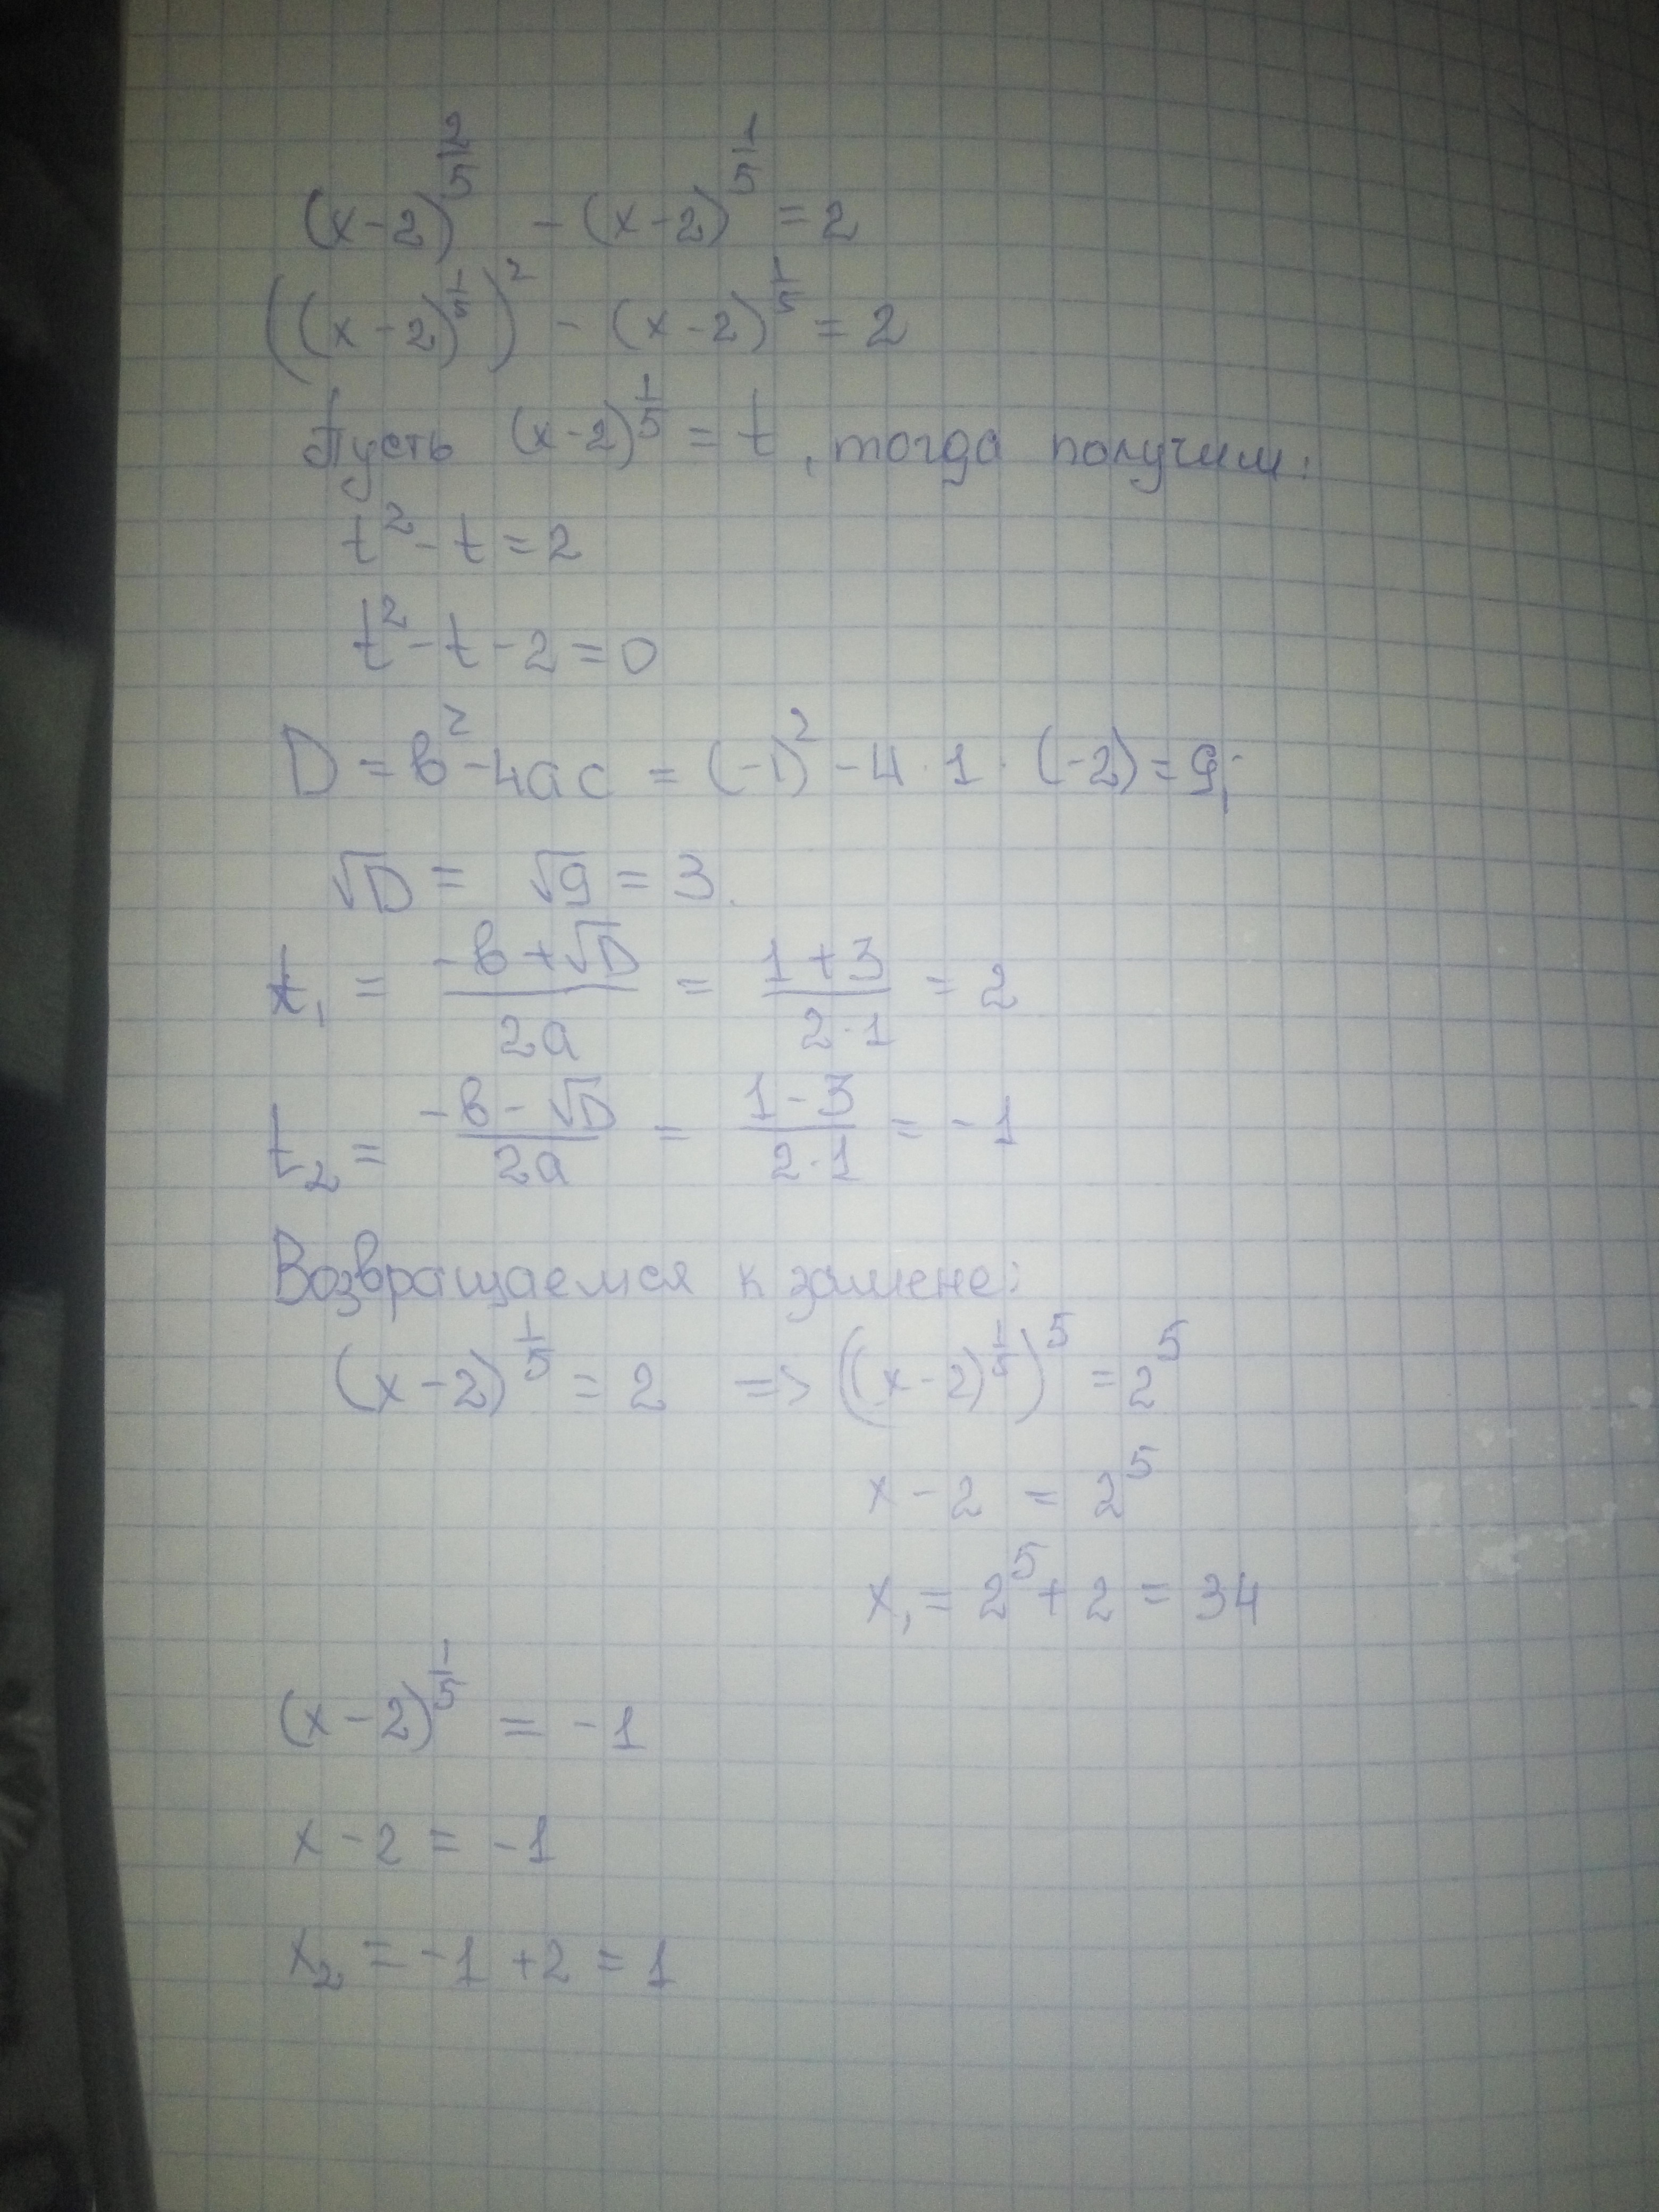 (x-2)^(2/5) - (x-2)^(1/5) = 2
((x-2)^(1/5))² - (x-2)^(1/5) = 2
Пусть (x-2)^(1/5) = t, тогда получим:
t² - t = 2
t² - t - 2 = 0
D = в² - 4ac = (-1)² - 4 · 1 · (-2) = 9;
√D = √9 = 3.
t₁ = (-в + √D)/(2a) = (1+3)/(2·1) = 2
t₂ = (-в - √D)/(2a) = (1-3)/(2·1) = -1
Возвращаемся к замене:
(x-2)^(1/5) = 2 => ((x-2)^(1/5))⁵ = 2⁵
x - 2 = 2⁵
x₁ = 2⁵ + 2 = 34
(x-2)^(1/5) = -1
x - 2 = -1
x₂ = -1 + 2 = 1